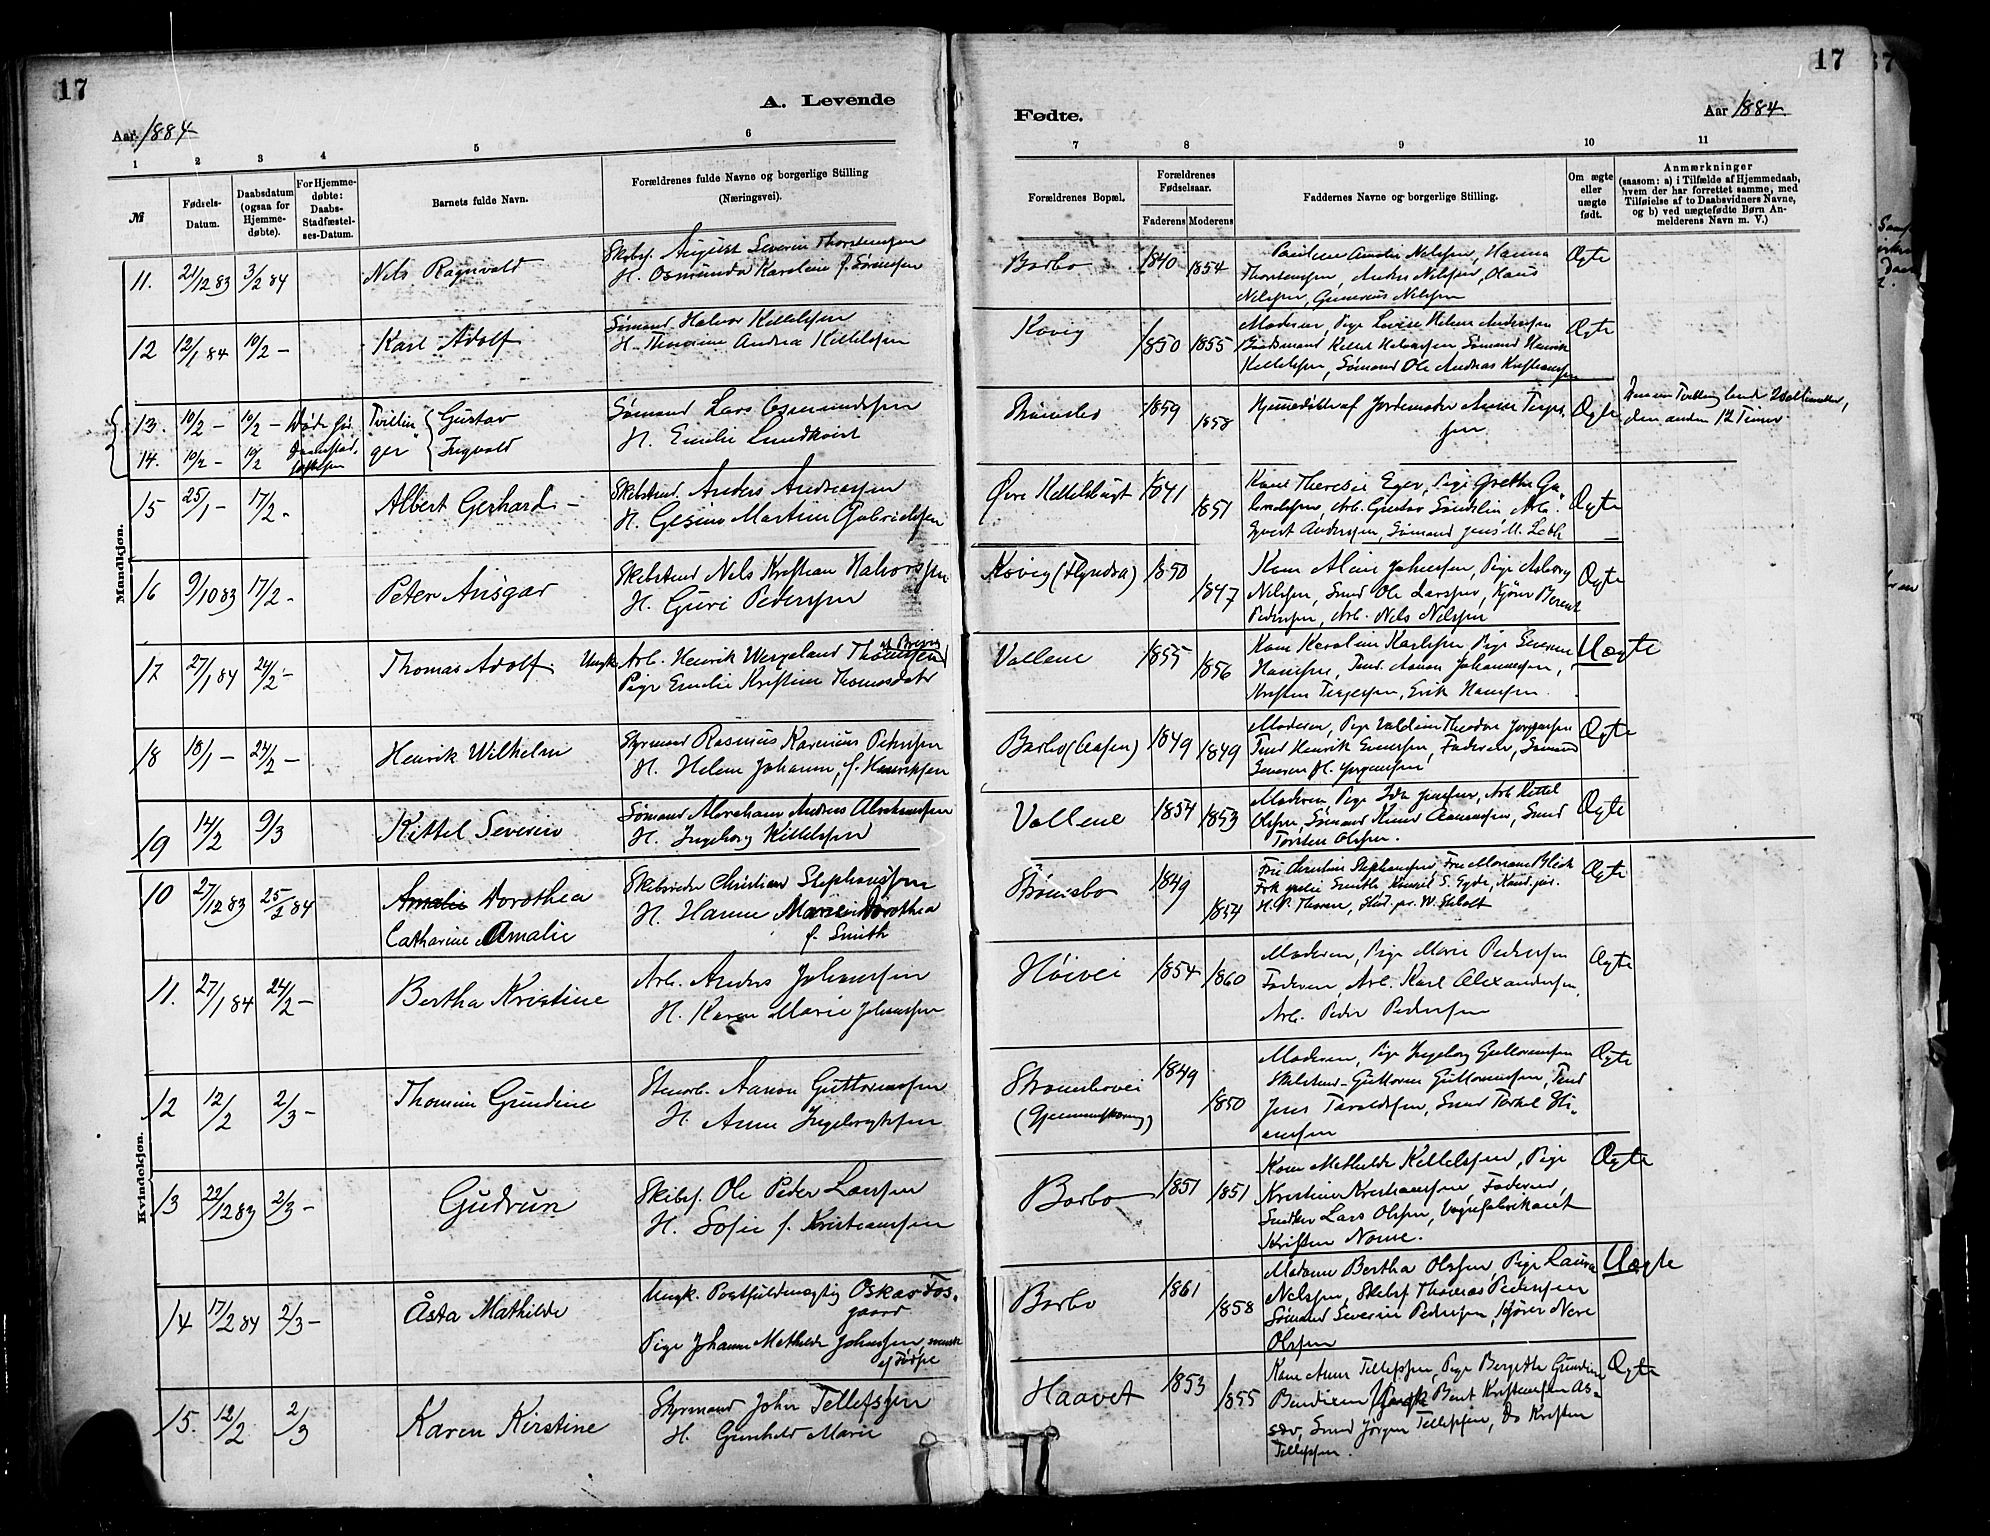 17
A. Levende
Aar 1884
1 2 3 4 5 6
№
Fødsels-
Datum.
Daabsdatum
(ogsaa for
Hjemme-
døbte).
For Hjemme-
døbte:
Daabs-
Stadfæstel-
ses-Datum.
Barnets fulde Navn.
Forældrenes fulde Navne og borgerlige Stilling
(Næringsvei).
Mandkjøn.
11. 21/12 83 3/2 84 Nils Ragnvald
Skibsf. August Severin Thorstensen
H. Osmunda Karoline f. Sørensen
12 12/1 84 10/2 – Karl Adolf
Sømand Halvor Kittelsen
H. Thomine Andrea Kittelsen
13. 10/2 – 10/2 – Døde før Tvillin Gustav
14. 10/2 – 10/2 ger Ingvald
Sømand Lars Osmundsen
H. Emilie Lundkvist
15 25/1 – 17/2 – Albert Gerhard –
Skibstmd. Anders Andreassen
H. Gesine Martine Gabrielsen
16 9/10 83 17/2 – Peter Ansgar
Skibstmd Nils Kristian Halvorsen
H. Guri Pedersen
17 27/1 84 24/2 – Thomas Adolf
af Brevig
Ungk. Arb. Henrik Wergeland Thomsen
Pige Emilie Kristine Thomasdatr
18 18/1 – 24/2 – Henrik Wilhelm
Styrmand Rasmus Karenius Petersen
H. Helene Johanne, f. Henriksen
19 14/2 9/3 Kittel Severin
Sømand Abraham Andreas Abrahamsen
H. Ingeborg Kittelsen
Kvindekjøn.
10 27/12 83 25/2 84 Amalie Dorothea
Catharine Amalie
Skibsreder Christian Stephansen
H. Hanne Marie Dorothea
f. Smith
11. 27/1 84 24/2 – Bertha Kristine
Arb. Anders Johansen
H. Karen Marie Johnsen
12 12/2 2/3 – Thomine Gundine
Stenarb. Aanon Guttormsen
H. Anne Ingebregtsen
13 22/12 83 2/3 – Gudrun
Skibsf. Ole Peder Larsen
H. Sofie f. Kristiansen
14 17/2 84 2/3 – Åsta Mathilde
Ungk. Postfuldmægtig Oskar Fos-
gaard
Pige Johanne Mathilde Johnsen,
15. 12/2 2/3 Karen Kirstine
Styrmand John Tellefsen
H. Gunhild Marie
17
Fødte.
Aar 1884
7 8 9 10 11
Forældrenes Bopæl.
Forældrenes
Fødselsaar.
Faderens Moderens
Faddernes Navne og borgerlige Stilling.
Om ægte
eller
uægte
født.
Anmærkninger
(saasom: a) i Tilfælde af Hjemmedaab,
hvem der har forrettet samme, med
Tilføielse af to Daabsvidners Navne,
og b) ved uægtefødte Børn An-
melderens Navn m. V.)
Barbo 1840 1854
Pauline Amalie Nilsen, Hanna
Thorstensen, Anders Nilsen, Olaus
Nilsen, Gunerius Nilsen
Ægte
Kovig 1850 1855
Moderen, Pige Lovise Helene Andersen
Gaardmand Kittel Halvorsen Sømand Henrik
Kittelsen, Sømand Ole Andreas Kristiansen
Ægte
Strømsbo 1859 1858
Hjemmedøbte af Jordemoder Anne Terje-
sen.
Ægte
den anden 12 Timer
Øvre Kittelsbugt 1841 1851
Kone Theresie Eger, Pige Grethe Ga-
brielsen, Arb. Gustav Sundlin Arb.
Syvert Andersen, Sømand Jens M.
Ægte
Kovig (Flyndra) 1850 1847
Kone Aline Johnsen, Pige Aslaug
Nilsen, Smd Ole Larsen, Kjører Berent
Pedersen, Arb. Nils Nilsen
Ægte
Vollene 1855 1856
Kone Karoline Karlsen, Pige Severine
Hansen, Tmd. Aanon Johannesen,
Kristen Terjesen, Erik Hansen.
Uægte
Barbo (Aasen) 1849 1849
Moderen, Pige Valdine Theodora Jørgensen
Tmd Henrik Evensen, Faderen, Sømand
Severin H. Jørgensen
Ægte
Vollene 1854 1853
Moderen, Pige Ida Jensen, Arb Kittel
Olsen, Sømand Knud Aanonsen, Smd
Torsten Olsen.
Ægte
Strømsbo 1849 1854
Fru Christine Stephansen, Fru Mariane Blick
Frk Julie Smith, Konsul S. Eyde, Kand. jur.
H. P. Thorsen, Stud. jur. W.
Ægte
Høivei 1854 1860
Moderen, Pige Marie Pedersen
Faderen, Arb. Karl Alexandersen,
Arb. Peder Pedersen
Ægte
Strømsbovei 1849 1850
Moderen, Pige Ingeborg Guttormsen
Skibstmd Guttorm Guttormsen, Tmd
Jens Taraldsen, Smd Torkel Sti-
ansen
Ægte
Barbo 1851 1851
Kone Mathilde Kittelsen, Pige
Kristine Kristiansen, Faderen,
Snedker Lars Olsen, Vognfabrikant
Kristen Næme.
Ægte
Barbo 1861 1858
Madame Bertha Olsen, Pige Laura
Nilsen, Skibsf Thomas Pedersen
Sømand Severin Pedersen, Kjører Nere
Olsen
Uægte
Haavet 1853 1855
Kone Anne Tellefsen, Pige Bergithe Gundine
Bendixen, Bent Kristensen As-
sev, Smd Jørgen Tellefsen, Do Kristen
Tellefsen.
Ægte